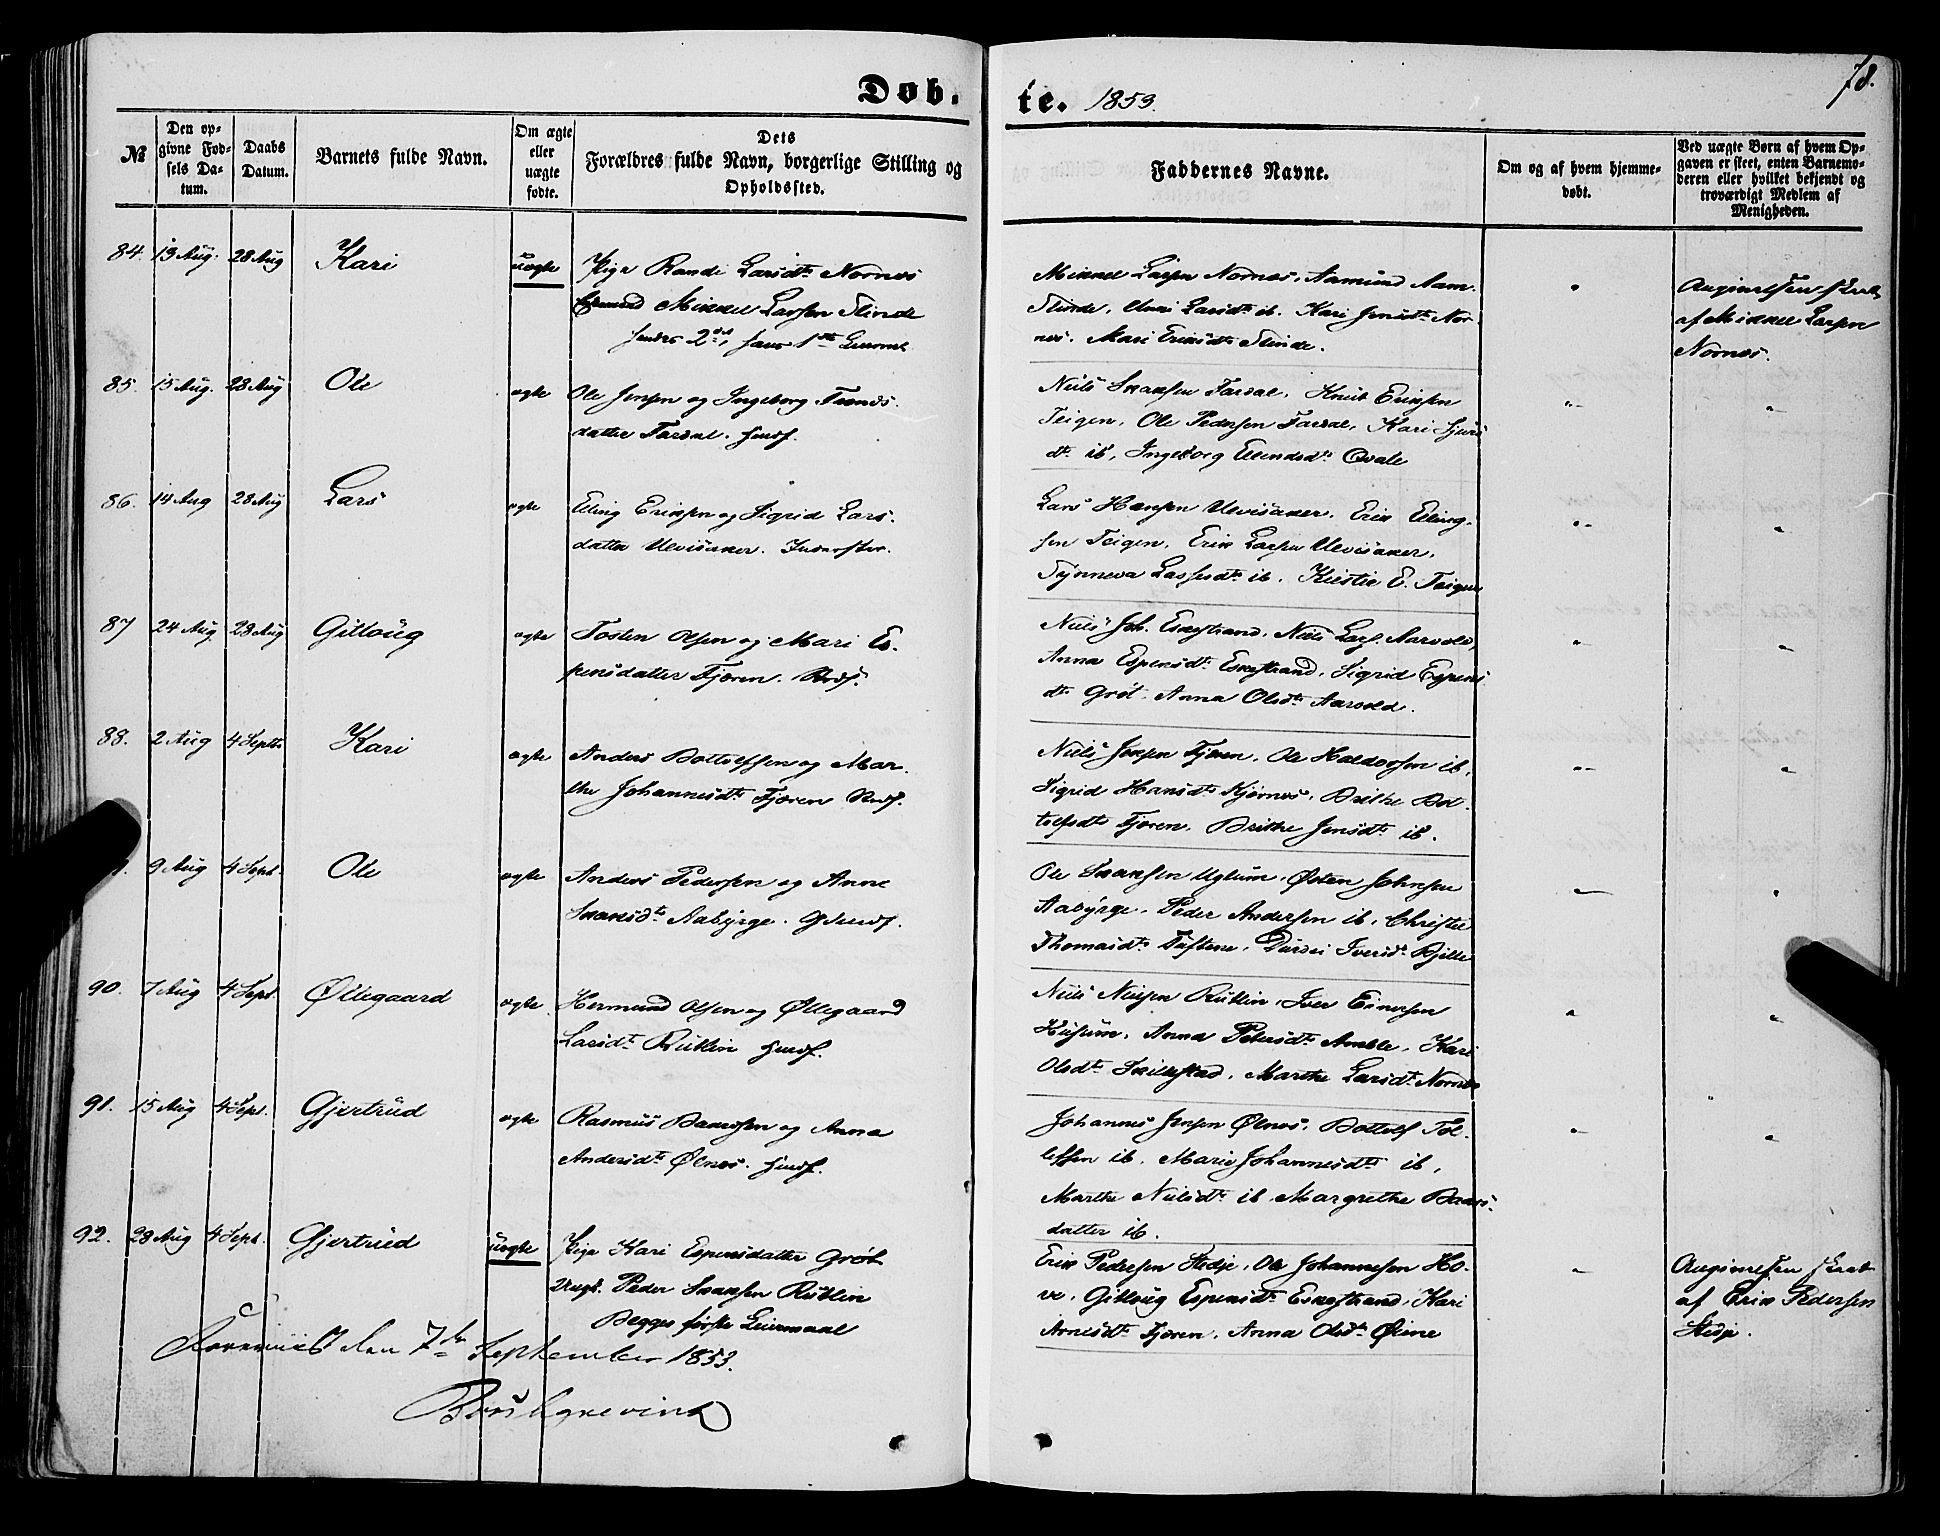 Døb. te. 1853. 78.
№
Den op-
givne Fød-
sels Da-
tum.
Daabs
Datum.
Barnets fulde Navn.
Om ægte
eller
uægte
fødte.
Dets
Forældres fulde Navn, borgerlige Stilling og
Opholdssted.
Faddernes Navne.
Om og af hvem hjemme-
døbt.
Ved uægte Børn af hvem Op-
gaven er skeet, enten Barnemo-
deren eller hvilket bekjendt og
troværdigt Medlem af
Menigheden.
84. 13 Aug. 28 Aug Kari uægte Pige Randi Larsdtr Nornes
Mikkel Larsen Slinde
hendes 2det, hans 1ste Leierm.
Mikkel Larsen Nornes, Aamund Aam.
Slinde, Larsdtr ib. Kari Jensdtr Nor-
nes. Mari Eriksdtr Slinde.
" Angivelsen skeet
af Mikkel Larsen
Nornes.
85. 15 Aug. 28 Aug Ole ægte Ole Jensen og Ingeborg Tronds-
datter Fardal. Huusf.
Niels Hansen Fardal, Knut Eriksen
Teigen, Ole Pedersen Fardal, Kari Sjurs
dtr ib, Ingeborg Erlendsdtr Qvale
"- "
86. 14 Aug 28 Aug Lars ægte Elling Eriksen og Sigrid Lars-
datter Ulvisaker. Inderster.
Lars Hansen Ulvisaker, Erik Elling-
sen Teigen, Erik Larsen Ulvisaker,
Synneva Lassesdtr ib. Kirstie E. Teigen
"- "
87 24 Aug 28 Aug Gitloug ægte Tosten Olsen og Mari Es-
pensdatter Fjæren. Strds.
Niels Joh. Eskestrand, Niels Lars. Aarvold,
Anna Espensdtr Eskestrand, Sigrid Espens
dtr Grøt. Anna Olsdtr Aarvold.
"- "
88. 2 Aug 4 Septr Kari ægte Anders Bottolfsen og Mar-
the Johannesdtr Fjæren Strds.
Niels Jensen Fjæren, Ole Haldorsen ib,
Sigrid Hansdtr Kjørnes, Brithe Bot-
tolfsdtr Fjæren. Brithe Jensdtr ib.
"- "
9 Aug 4 Sept. Ole ægte Anders Pedersen og Anne
Hansdtr Aabyrge. Huusf.
Ole Hansen Uglum, Østen Johnsen
Aabyrge, Peder Andersen ib, Christie
Thomasdtr Tuftene, Durdei Iversdtr Bjelde
- "
90. 7 Aug 4 Sept. Øllegaard ægte Hermund Olsen og Øllegaard
Larsdtr Rutlin Huusf.
Niels Nielsen Rutlin, Iver Einersen
Husum, Anna Petersdtr Amble, Kari
Olsdtr Skillestad, Marthe Larsdtr Nornes
" "
91. 15 Aug 4 Sept. Gjertrud ægte Rasmus Baardsen og Anna
Andersdtr Ølnes. Huusf.
Johannes Jensen Ølnes, Bottolf Tol-
lefsen ib. Marie Johannesdtr ib,
Marthe Nielsdtr ib Margrethe Baards-
datter ib.
"- "
92. 28 Aug 4 Sept. Gjertrud uægte Pige Kari Espensdatter Grøt
Ungk. Peder Hansen Rutlin
Begges første Leiermaal
Erik Pedersen Stedje, Ole Johannesen Ho-
ve, Gitloug Espensdtr Eskestrand, Kari
Arnesdtr Fjæren, Anna Olsdtr Øime
- Angivelsen skeet
af Erik Pedersen
Stedje.
den 7de September 1853.